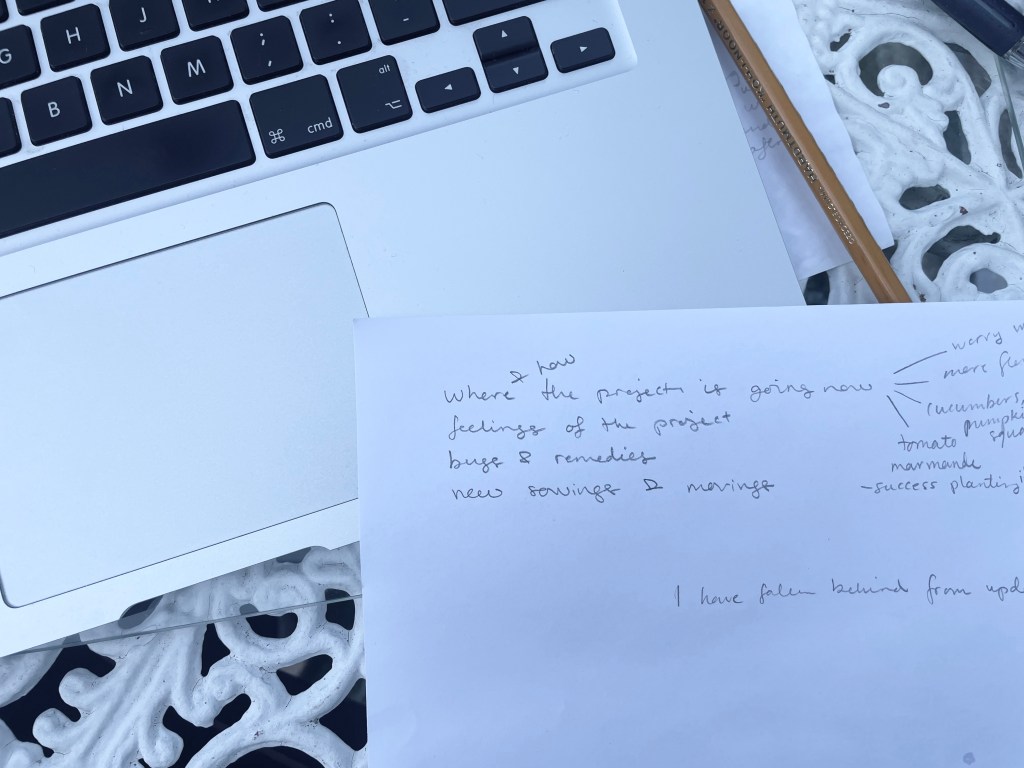 G H J
B N M ; , : .
_ -
alt ⌥
⌘ cmd
& how
where the project is going now
feelings of the project
bugs & remedies
new sowings & movings
worry
more
cucumbers,
tomato
marmande
- success planting
I have falen behind from